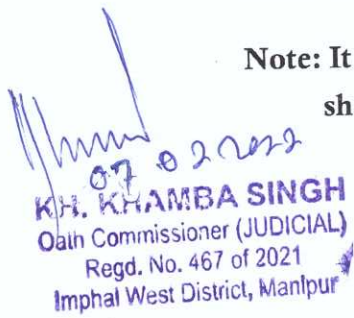 Note: It
sh
07 02 2022
KH. KHAMBA SINGH
Oath Commissioner (JUDICIAL)
Regd. No. 467 of 2021
Imphal West District, Manipur